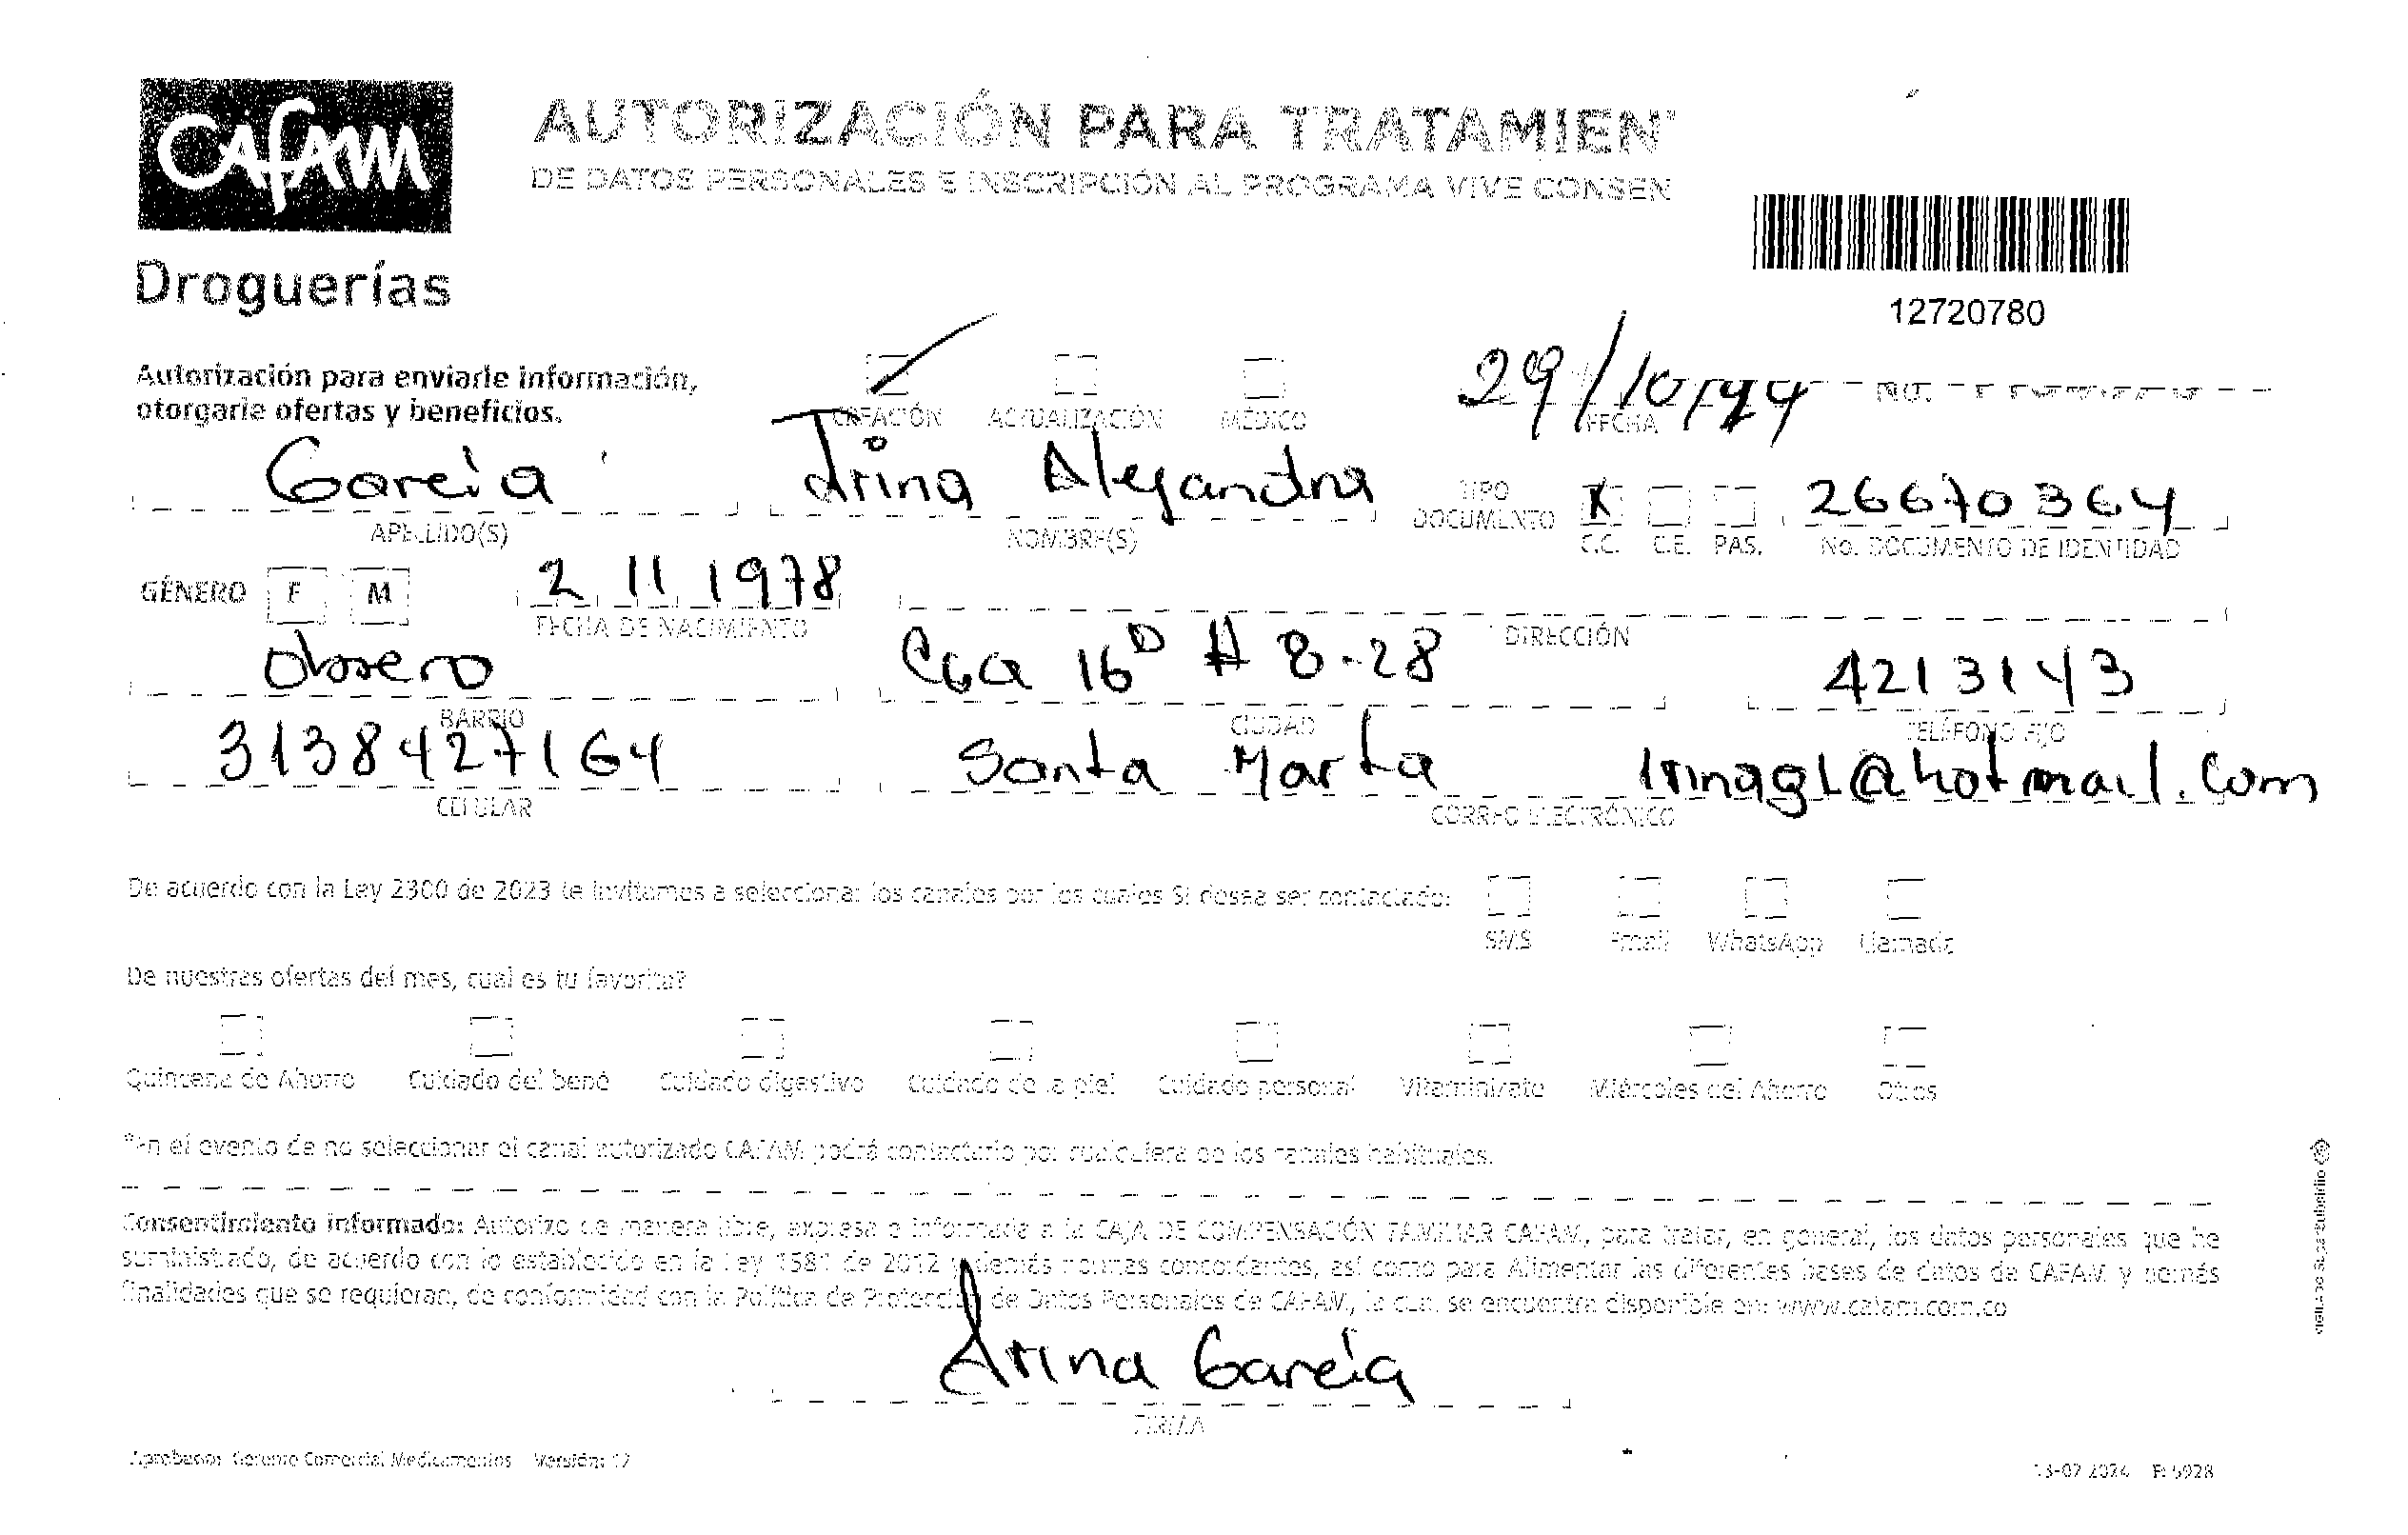 CAFAM
Droguerías
AUTORIZACIÓN PARA TRATAMIEN
DE DATOS PERSONALES E INSCRIPCIÓN AL PROGRAMA VIVE CONSEN
12720780
Autorización para enviarle información,
otorgarle ofertas y beneficios.
CREACIÓN ACTUALIZACIÓN MÉDICO
29/10/
FECHA
García Irina Alejandra X 26670364
APELLIDO(S) NOMBRE(S) TIPO DOCUMENTO C.C. C.E. PAS. No. DOCUMENTO DE IDENTIDAD
GÉNERO F M 2 11 1978
FECHA DE NACIMIENTO DIRECCIÓN
Obrero Cra 16D # 8-28 4213143
BARRIO CIUDAD TELÉFONO FIJO
3138427164 Santa Marta irinagl@hotmail.com
CELULAR CORREO ELECTRÓNICO
De acuerdo con la Ley 2300 de 2023 te invitamos a seleccionar los canales por los cuales Si desea ser contactado:
SMS Email WhatsApp Llamada
De nuestras ofertas del mes, cual es tu favorita?
Quincena de Ahorro Cuidado del bebé Cuidado digestivo Cuidado de la piel Cuidado personal Vitamínizate Miércoles del Ahorro Otros
*En el evento de no seleccionar el canal autorizado CAFAM podrá contactarlo por cualquiera de los canales habituales.
Consentimiento informado: Autorizo de manera libre, expresa e informada a la CAJA DE COMPENSACIÓN FAMILIAR CAFAM, para tratar, en general, los datos personales que he
suministrado, de acuerdo con lo establecido en la Ley 1581 de 2012 y demás normas concordantes, así como para Alimentar las diferentes bases de datos de CAFAM y demás
finalidades que se requieran, de conformidad con la Política de Protección de Datos Personales de CAFAM, la cual se encuentra disponible en: www.cafam.com.co
Irina García
FIRMA
Aprobado: Gerente Comercial Medicamentos Versión: 12
13-02 2024 F: 5928